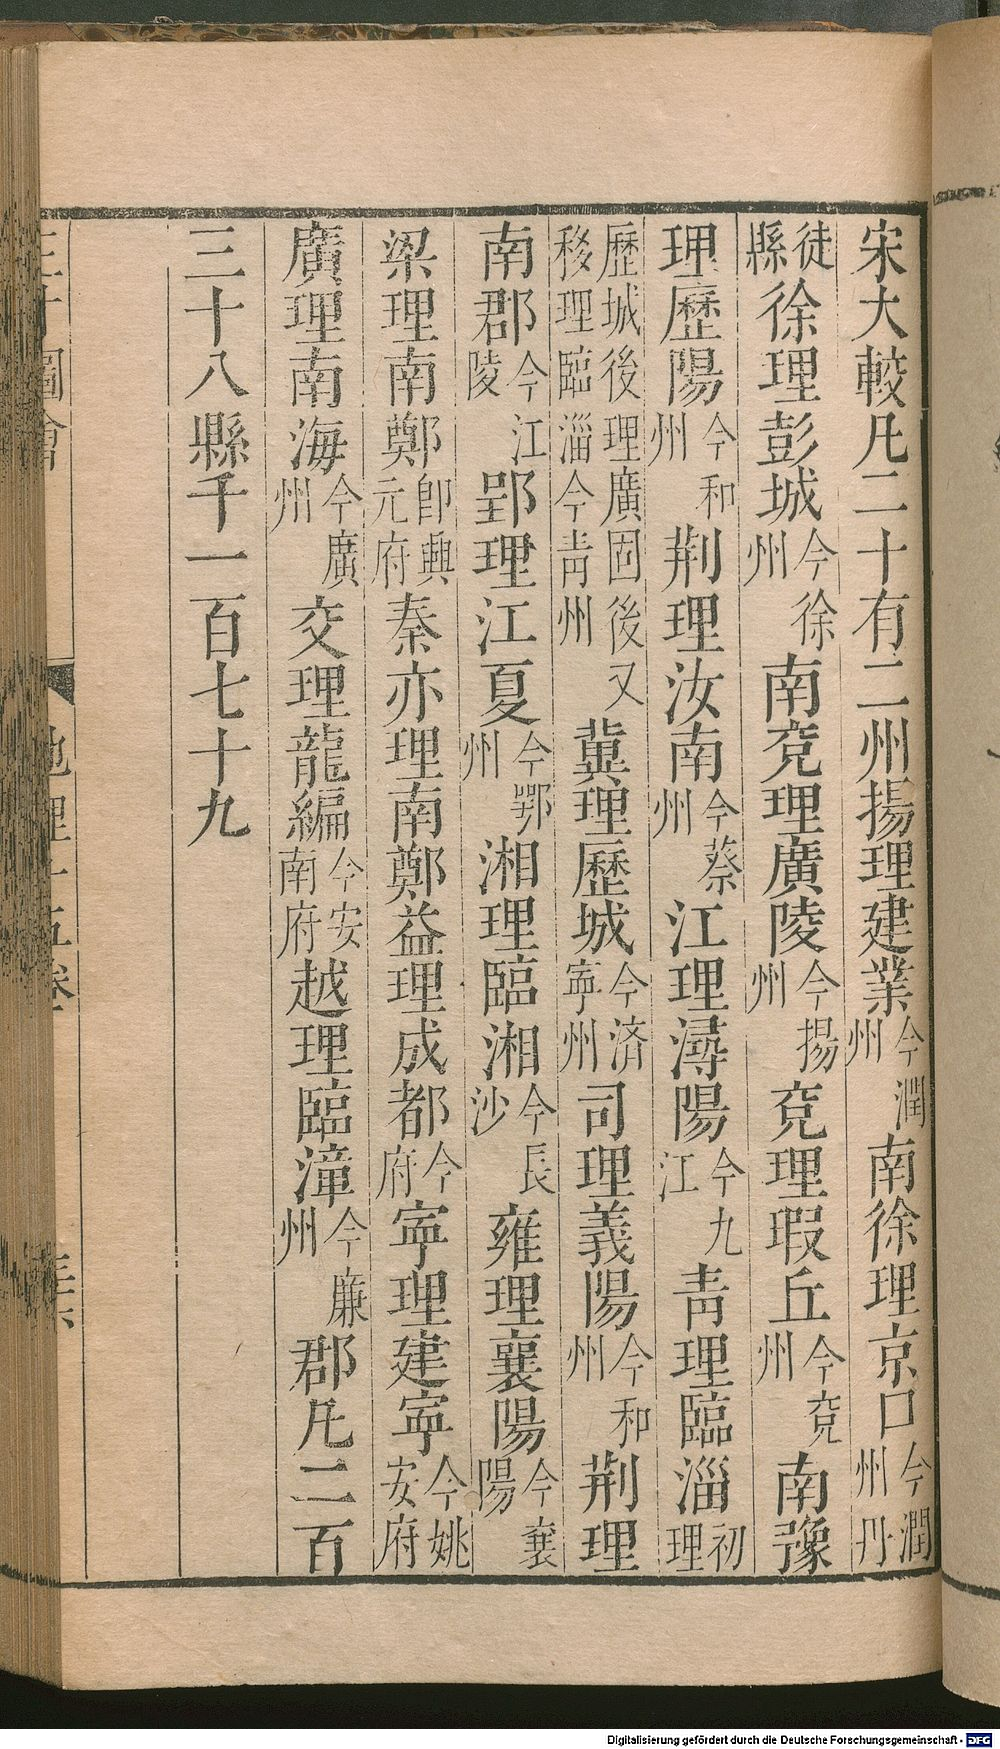 宋大較凡二十有二州揚理建業今潤州南徐理京口今潤州丹
徒縣徐理彭城今徐州南兖理廣陵今揚州兖理瑕丘今兖州南豫
理歷陽今和州荆理汝南今蔡州江理潯陽今九江青理臨淄初理
歷城後理廣固後又移理臨淄今青州冀理歷城今済寧州司理義陽今和州荆理
南郡今江陵郢理江夏今鄂州湘理臨湘今長沙雍理襄陽今襄陽
梁理南鄭即興元府秦亦理南鄭益理成都今府寧理建寧今姚安府
廣理南海今廣州交理龍編今安南府越理臨漳今廉州郡凡二百
三十八縣千一百七十九
圖會
地理十五卷
Digitalisierung gefördert durch die Deutsche Forschungsgemeinschaft - DFG